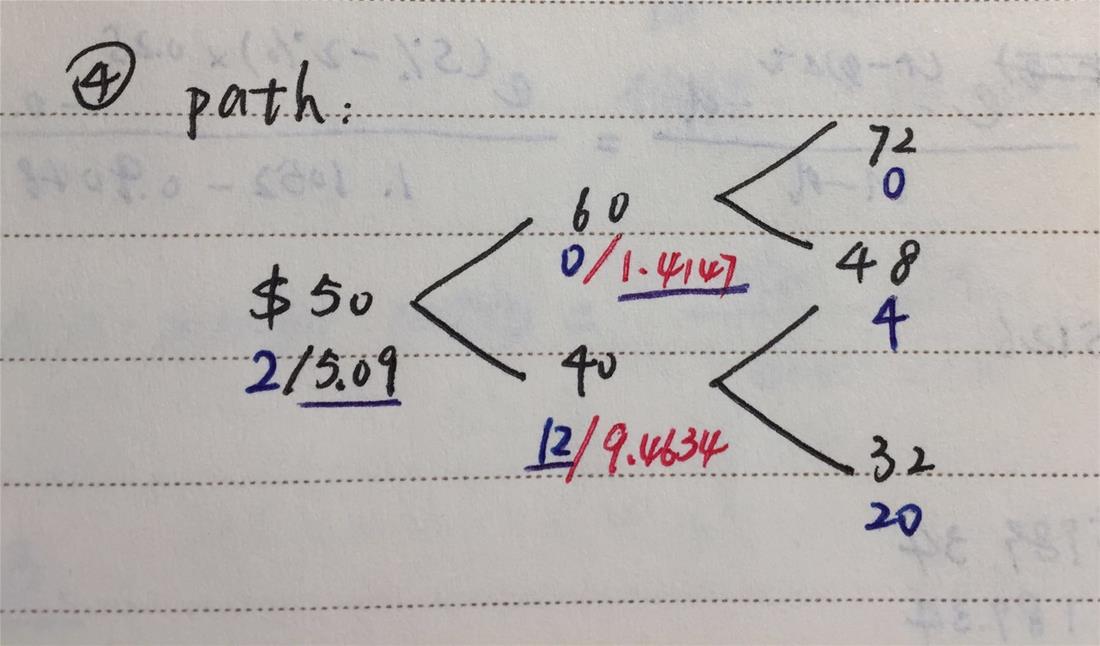 ④ path:
72
0
60
0/1.4147
48
4
$50
2/5.09
40
12/9.4634
32
20